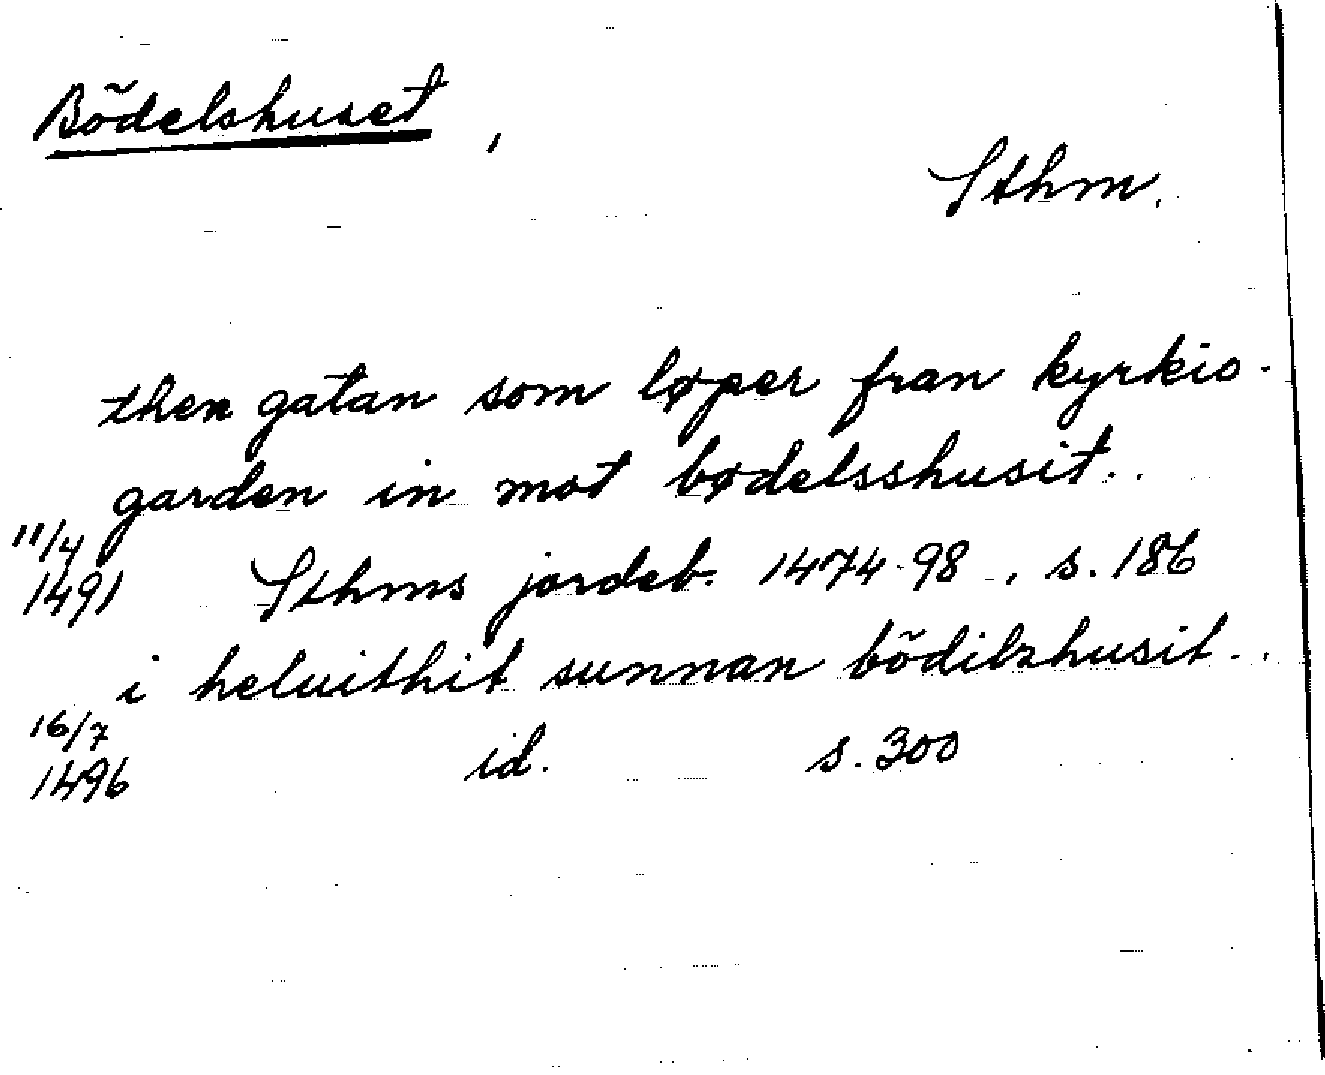 Bödelshuset,
Sthm.
then gatan som løper fran kyrkio-
garden in mot bødelsshusit..
11/4
1491 Sthms jordeb. 1474-98, s. 186
i heluithit sunnan bödilzhusit..
16/7
1496 id. s. 300